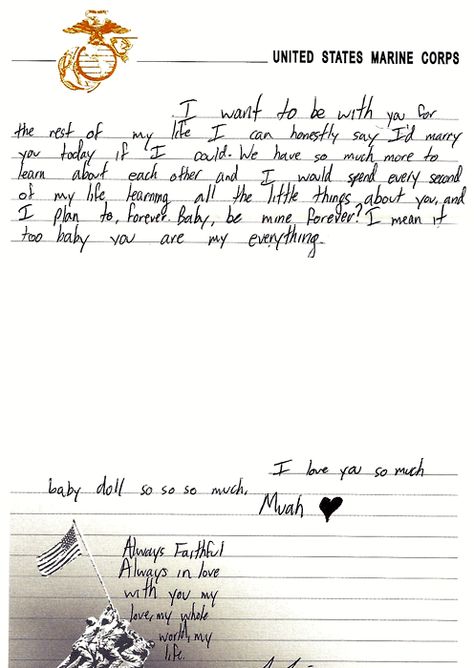 UNITED STATES MARINE CORPS
I want to be with you for
the rest of my life I can honestly say I'd marry
you today if I could. We have so much more to
learn about each other and I would spend every second
of my life learning all the little things about you, and
I plan to, forever. Baby, be mine forever? I mean it
too baby you are my everything.
I love you so much
baby doll so so so much.
Muah ♥
Always Faithful
Always in love
with you my
love, my whole
world, my
life.